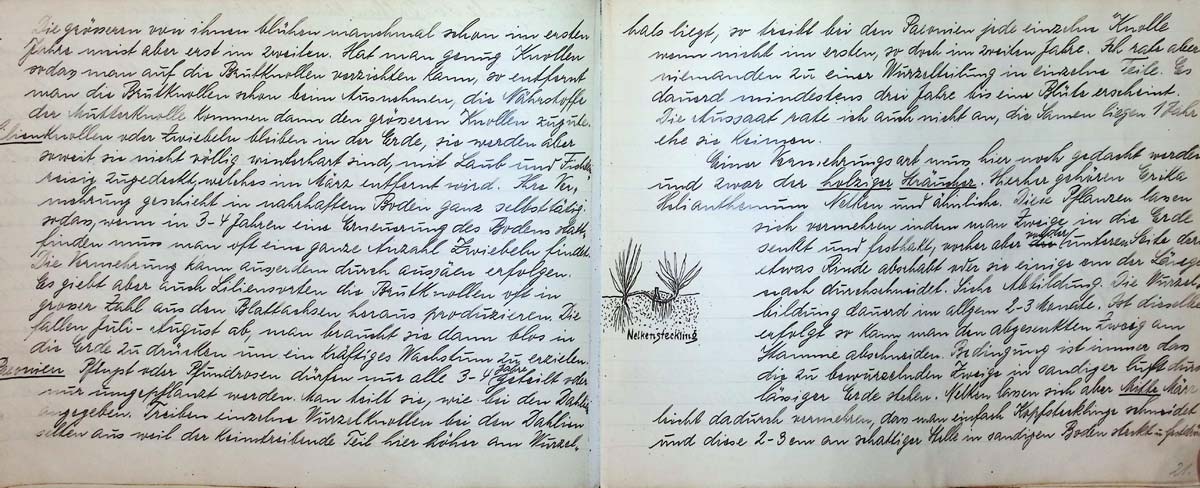 Die grösseren von ihnen blühen manchmal schon im ersten
Jahre meist aber erst im zweiten. Hat man genug Knollen
sodas man auf die Brutknollen verzichten kann, so entfernt
man die Brutknollen schon beim Ausnehmen, die Nährstoffe
der Mutterknolle kommen dann den grösseren Knollen zugute.
Lilienknollen oder Zwiebeln bleiben in der Erde, sie werden aber
soweit sie nicht völlig winterhart sind, mit Laub und Fichten
reisig zugedeckt, welches im März entfernt wird. Ihre Ver,
mehrung geschieht in nahrhaftem Boden ganz selbsttätig.
sodas, wenn in 3-4 Jahren eine Erneuerung des Bodens statt,
finden muss man oft eine ganze Anzahl Zwiebeln findet.
Die Vermehrung kann auserdem durch aussäen erfolgen.
Es giebt aber auch Liliensorten die Brutknollen oft in
groser Zahl aus den Blattachsen heraus produzieren. Die
fallen Juli-August ab, man braucht sie dann blos in
die Erde zu drücken um ein kräftiges Wachstum zu erzielen.
Paeonien Pfingst oder Pfundrosen dürfen nur alle 3-4 Jahre geteilt oder
nur umgepflanzt werden. Man teilt sie, wie bei den Dahlien
angegeben. Treiben einzelne Wurzelknollen bei den Dahlien
selten aus weil der Keimtreibende Teil hier höher am Wurzel,
hals liegt, so treibt bei den Paeonien jede einzelne Knolle
wenn nicht im ersten, so doch im zweiten Jahre. Ich rate aber
niemanden zu einer Wurzelteilung in einzelne Teile. Es
dauerd mindestens drei Jahre bis eine Blüte erscheint.
Die Aussaat rate ich auch nicht an, die Samen liegen 1 Jahr
ehe sie Keimen.
Einer Vermehrungsart muss hier noch gedacht werden
und zwar der holziger Sträucher. Hierher gehören Erika
Helianthemum Nelken und ähnliche. Diese Pflanzen lassen
sich vermehren indem man Zweige in die Erde
senkt und festhakt, vorher aber an der unteren Seite der
etwas Rinde abschabt oder sie einige cm der Länge
nach durchschneidet. Siehe Abbildung. Die Wurzel
bildung dauerd im allgem. 2-3 Monate. Ist dieselbe
erfolgt so kann man den abgesenkten Zweig am
Stamme abschneiden. Bedingung ist immer das
die zu bewurzelnden Zweige in sandiger luft durch
lässiger Erde stehen. Nelken lassen sich aber Mitte März
leicht dadurch vermehren, das man einfach Kopfstecklinge schneidet
und diese 2-3 cm an schattiger Stelle in sandigen Boden steckt u.
Nelkensteckling
21.